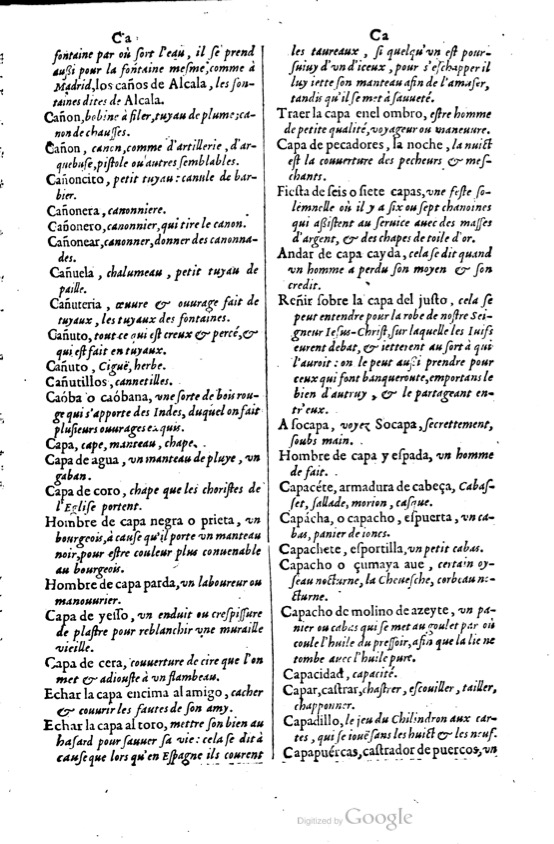 Ca
fontaine par où ſort l'eau, il ſe prend
auſſi pour la fontaine meſme, comme à
Madrid, los caños de Alcala, les fon-
taines dites de Alcala.
Cañon, bobine à filer, tuyau de plume; ca-
non de chauſſes.
Cañon, canon, comme d'artillerie, d'ar-
quebuſe, piſtole ou autres ſemblables.
Cañoncito, petit tuyau: canule de bar-
bier.
Cañonera, canonniere.
Cañonero, canonnier, qui tire le canon.
Cañonear, canonner, donner des canonna-
des.
Cañuela, chalumeau, petit tuyau de
paille.
Cañuteria, œuure & ouurage fait de
tuyaux, les tuyaux des fontaines.
Cañuto, tout ce qui est creux & percé, &
qui est fait en tuyaux.
Cañuto, Ciguë, herbe.
Cañutillos, cannetilles.
Caóba o caóbana, vne ſorte de bois rou-
ge qui s'apporte des Indes, duquel on fait
pluſieurs ouurages exquis.
Capa, cape, manteau, chape.
Capa de agua, vn manteau de pluye, vn
gaban.
Capa de coro, chape que les choriſtes de
l'Egliſe portent.
Hombre de capa negra o prieta, vn
bourgeois, à cauſe qu'il porte vn manteau
noir, pour eſtre couleur plus conuenable
au bourgeois.
Hombre de capa parda, vn laboureur ou
manouurier.
Capa de yeſſo, vn enduit ou creſpiſſure
de plaſtre pour reblanchir vne muraille
vieille.
Capa de cera, couuerture de cire que l'on
met & adiouſte à vn flambeau.
Echar la capa encima al amigo, cacher
& couurir les fautes de ſon amy.
Echar la capa al toro, mettre ſon bien au
haſard pour ſauuer ſa vie: cela ſe dit à
cauſe que lors qu'en Eſpagne ils courent
Ca
les taureaux, ſi quelqu'vn eſt pour-
ſuiuy d'vn d'iceux, pour s'eſchapper il
luy iette ſon manteau afin de l'amuſer,
tandis qu'il ſe met à ſauueté.
Traer la capa en el ombro, eſtre homme
de petite qualité, voyageur ou maneuure.
Capa de pecadores, la noche, la nuict
eſt la couuerture des pecheurs & meſ-
chants.
Fieſta de ſeis o ſiete capas, vne feſte ſo-
lemnelle où il y a ſix ou ſept chanoines
qui aſſiſtent au ſeruice auec des maſſes
d'argent, & des chapes de toile d'or.
Andar de capa cayda, cela ſe dit quand
vn homme a perdu ſon moyen & ſon
credit.
Reñir ſobre la capa del juſto, cela ſe
peut entendre pour la robe de noſtre Sei-
gneur Ieſus-Chriſt, ſur laquelle les Iuifs
eurent debat, & ietterent au ſort à qui
l'auroit: on le peut auſſi prendre pour
ceux qui font banqueroute, emportans le
bien d'autruy, & le partageant en-
tr'eux.
A ſocapa, voyez Socapa, ſecrettement,
ſoubs main.
Hombre de capa y eſpada, vn homme
de fait.
Capacéte, armadura de cabeça, Cabaſ-
ſet, ſallade, morion, caſque.
Capácha, o capacho, eſpuerta, vn ca-
bas, panier de ioncs.
Capachete, eſportilla, vn petit cabas.
Capacho o çumaya aue, certain oy-
ſeau nocturne, la Cheueſche, corbeau no-
cturne.
Capacho de molino de azeyte, vn pa-
nier ou cabas qui ſe met au goulet par où
coule l'huile du preſſoir, afin que la lie ne
tombe auec l'huile pure.
Capacidad, capacité.
Capar, caſtrar, chaſtrer, eſcouiller, tailler,
chapponner.
Capadillo, le jeu du Chilindron aux car-
tes, qui ſe iouë ſans les huict & les neuf.
Capapuércas, caſtrador de puercos, vn
Digitized by Google